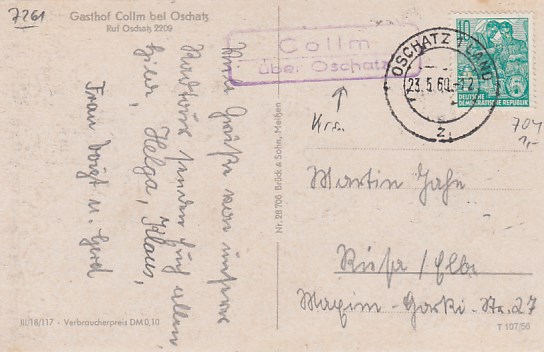 7261
Gasthof Collm bei Oschatz
Ruf Oschatz 2209
Viele Grüße von unserer
Radtour senden Euch allen
Helga, Klaus,
Frau Voigt u. Gerd
III/18/117 - Verbraucherpreis DM 0,10
Nr. 28706 Brück & Sohn, Meißen
Collm
über Oschatz
OSCHATZ LAND
23.5.60
z
10
5
DEUTSCHE
DEMOKRATISCHE REPUBLIK
704
1,-
Krs.
Martin Jahn
Riesa/Elbe
Maxim-Gorki-Str. 27
T 107/56